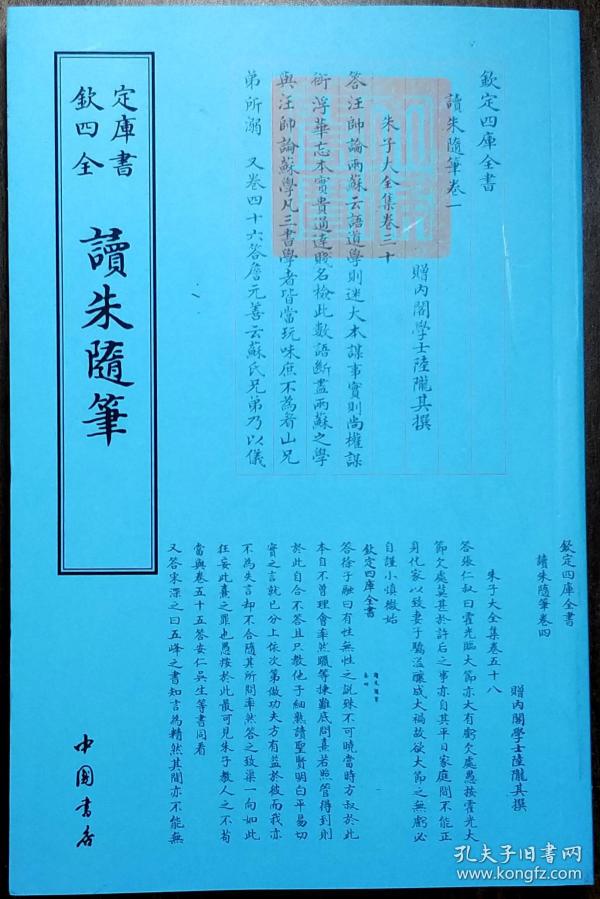 欽定四庫全書
讀朱隨筆
中國書店
欽定四庫全書
讀朱隨筆卷一
贈內閣學士陸隴其撰
朱子大全集卷三十
答汪帥論兩蘇云語道學則迷大本謀事實則尚權謀
衒浮華忘本實貴通達賤名檢此數語斷盡兩蘇之學
與汪帥論蘇學凡三書學者皆當玩味庶不為眉山兄
弟所溺 又卷四十六答詹元善云蘇氏兄弟乃以儀
欽定四庫全書
讀朱隨筆卷四
贈內閣學士陸隴其撰
朱子大全集卷五十八
答張仁叔曰霍光臨大節亦大有虧欠處愚按霍光大
節欠處莫甚於許后之事亦自其平日家庭間不能正
身代家以致妻子驕溢釀成大禍故欲大節之無虧必
自謹小慎微始
欽定四庫全書
答徐子融曰有性無性之說殊不可曉當時方叔於此
本自不曾理會率然躐等揀難底問熹若照管得到則
於此自合不答且只教他子細熟讀聖賢明白平易切
實之言就已分上依次第做功夫方有益於彼而我亦
不為失言却不合隨其所問率然答之致渠一向如此
狂妄此熹之罪也愚按於此最可見朱子教人之不苟
當與卷五十五答安仁吳生等書同看
又答宋深之曰五峰之書知言為精然其間亦不能無
孔夫子旧书网
www.kongfz.com